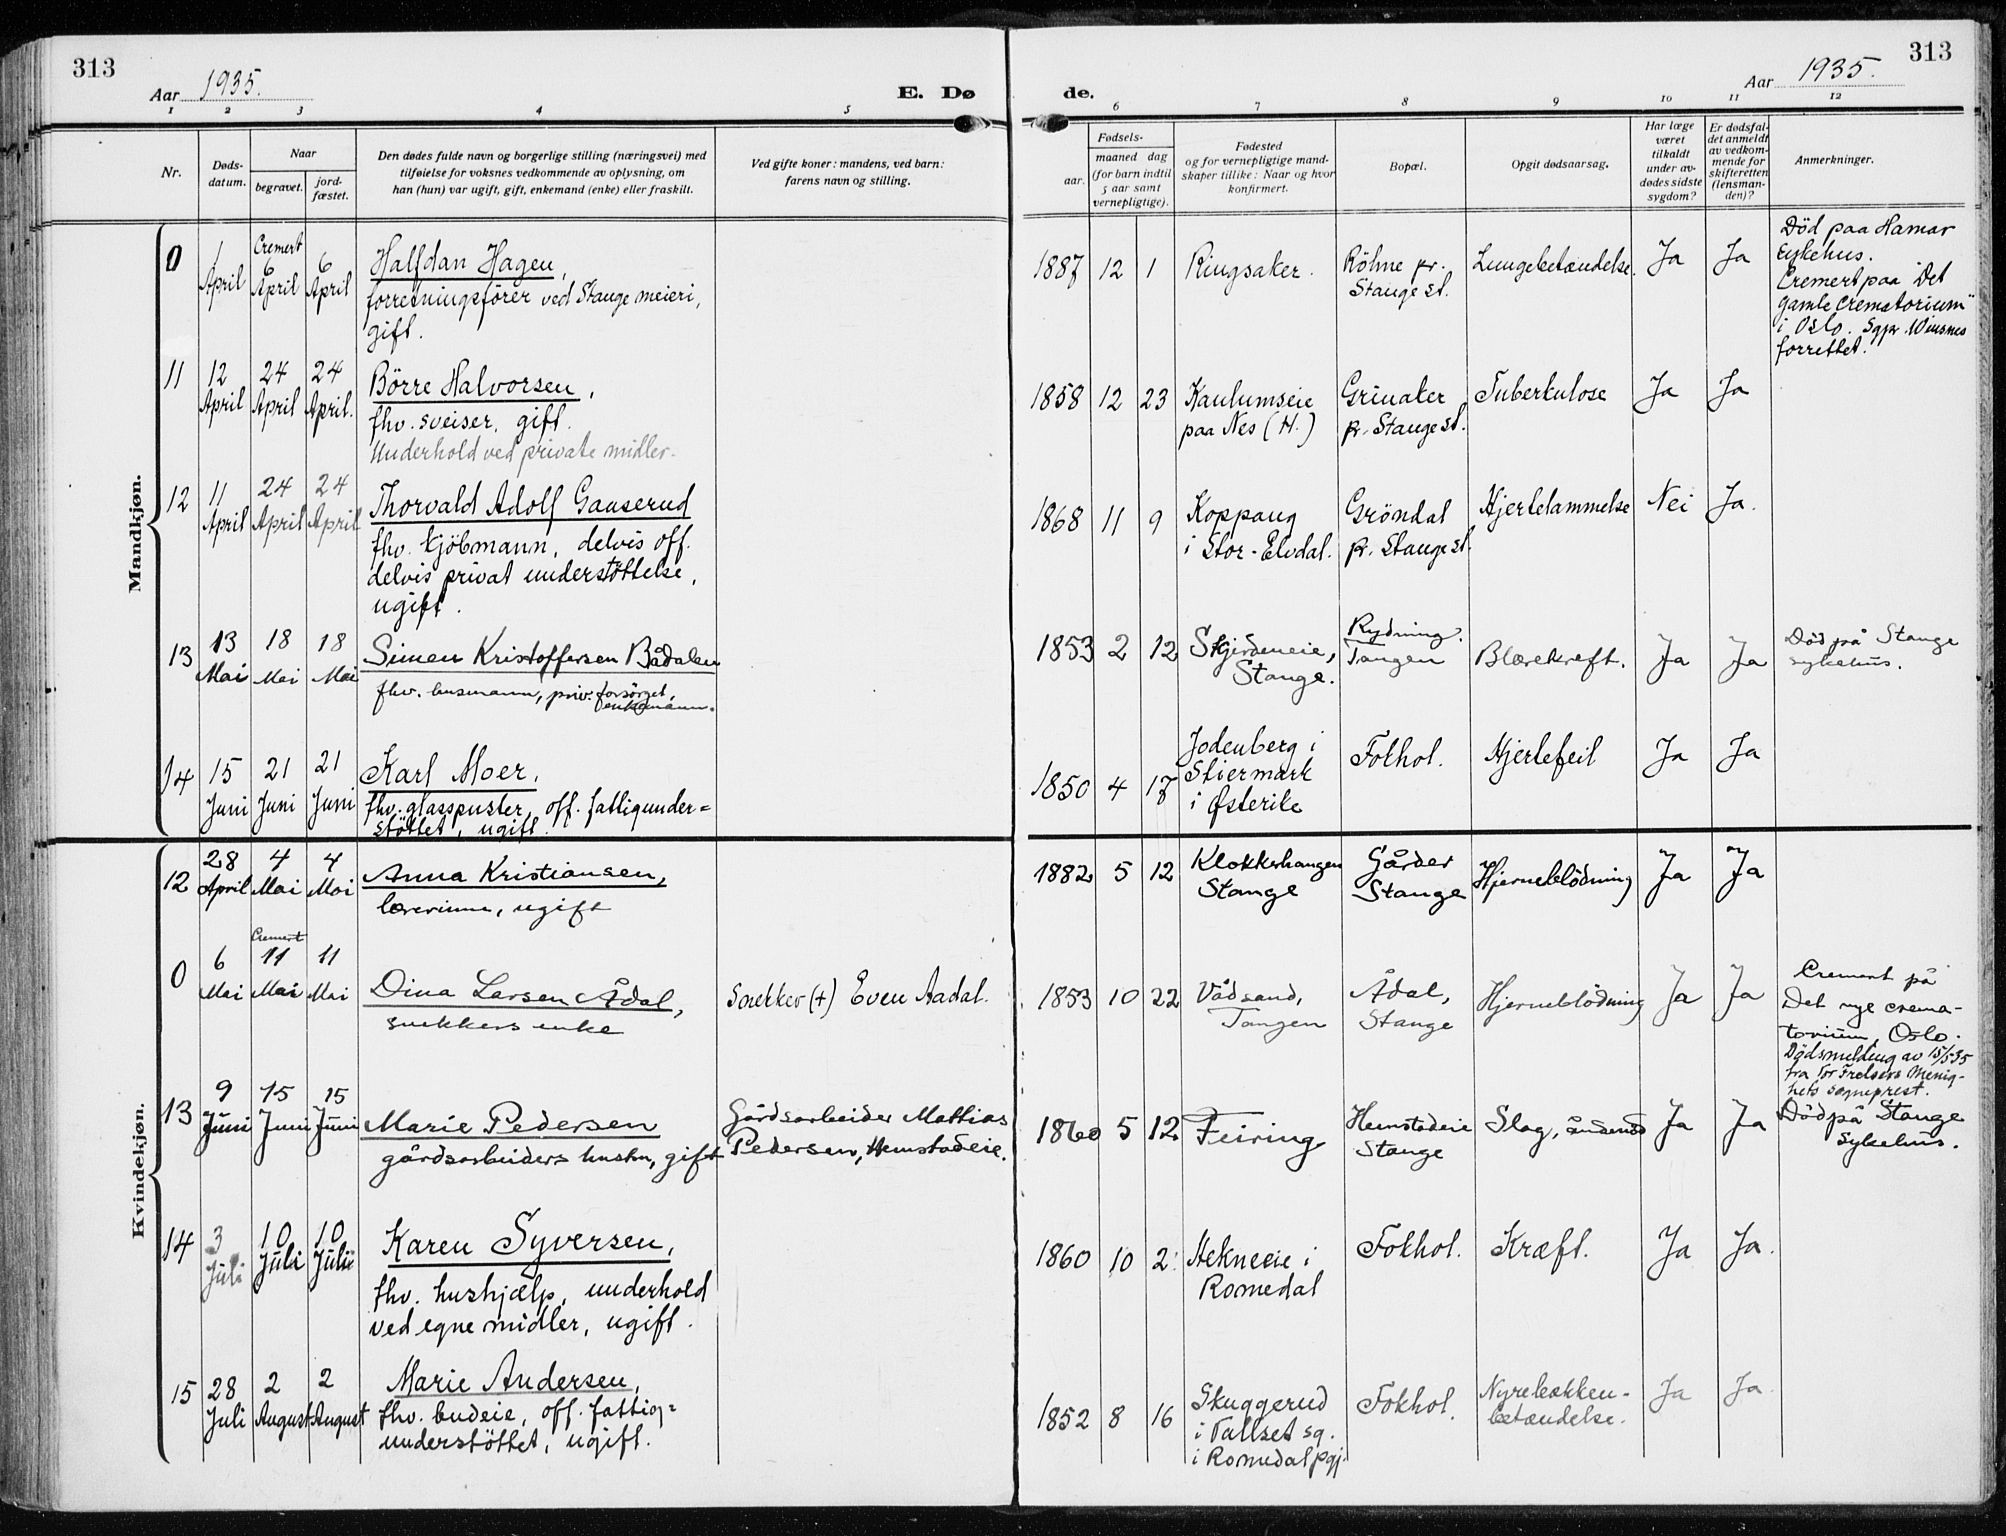 313
Aar 1935.
E. Dø
de.
Aar 1935.
313
1 2 3 4 5 6 7 8 9 10 11 12
Nr.
Døds-
datum.
Naar
begravet.
jord-
fæstet.
Den dødes fulde navn og borgerlige stilling (næringsvei) med
tilføielse for voksnes vedkommende av oplysning, om
han (hun) var ugift, gift, enkemand (enke) eller fraskilt.
Ved gifte koner: mandens, ved barn:
farens navn og stilling.
Fødsels-
aar.
maaned dag
(for barn indtil
5 aar samt
vernepligtige).
Fødested
og for vernepligtige mand-
skaper tillike: Naar og hvor
konfirmert.
Bopæl.
Opgit dødsaarsag.
Har læge
været
tilkaldt
under av-
dødes sidste
sygdom?
Er dødsfal-
det anmeldt
av vedkom-
mende for
skifteretten
(lensman-
den)?
Anmerkninger.
Mandkjøn.
0
1
April
Cremert
6
April
6
April
Halfdan Hagen,
forretningsfører ved Stange meieri,
gift.
1887 12 1
Ringsaker.
Röhne pr.
Stange st.
Lungebetændelse.
Ja
Ja
Död paa Hamar
sykehus.
Cremert paa "Det
gamle crematorium"
i Oslo. Sgpr. Winsnes
forrettet.
11
12
April
24
April
24
April.
Börre Halvorsen,
fhv. sveiser, gift.
Underhold ved private midler.
1858 12 23
Kaulumseie
paa Nes (H.)
Grinaker
pr. Stange st.
Tuberkulose
Ja
Ja
12
11
April
24
April
24
April
Thorvald Adolf Gauserud
fhv. kjöbmann, delvis off.
delvis privat understöttelse,
ugift.
1868 11 9
Koppang
i Stor-Elvdal.
Gröndal
pr. Stange st.
Hjertelammelse
Nei
Ja.
13
13
Mai
18
Mai
18
Mai
Simen Kristoffersen Bådalen
fhv. husmann, priv. forsörget,
enkemann.
1853 2 12
Skjerdeneie,
Stange.
Rydning.
Tangen
Blærekreft.
Ja
Ja
Död på Stange
sykehus.
14
15
Juni
21
Juni
21
Juni
Karl Moer,
fhv. glasspuster, off. fattigunder=
stöttet, ugift.
1850 4 17
Jodenberg i
Stiermark
i Østerike
Fokhol.
Hjertefeil
Ja
Ja
Kvindekjøn.
12
28
April
4
Mai
4
Mai
Anna Kristiansen,
lærerinne, ugift
1882 5 12
Klokkerhaugen
Stange
Gårder
Stange
Hjerneblödning
Ja
Ja
0
6
Mai
Cremert
11
Mai
11
Mai
Dina Larsen Ådal,
snekkers enke
Snekker (+) Even Aadal.
1853 10 22
Vådsand,
Tangen
Ådal,
Stange
Hjerneblödning
Ja
Ja
Cremert på
Det nye crema-
torium, Oslo.
Dödsmelding av 15/5 35
fra Vor Frelsers Menig-
hets sogneprest.
13
9
Juni
15
Juni
15
Juni
Marie Pedersen
gårdsarbeiders hustru, gift
Gårdsarbeider Mathias
Pedersen, Hemstadeie.
1860 5 12
Feiring
Hemstadeie
Stange
Slag,
Ja
Ja
Död på Stange
Sykehus.
14
3
Juli
10
Juli
10
Juli
Karen Syversen,
fhv. hushjælp, underhold
ved egne midler, ugift.
1860 10 2
Hekneeie i
Romedal
Fokhol.
Kræft.
Ja
Ja.
15
28
Juli
2
August
2
August
Marie Andersen,
fhv. budeie, off. fattig=
understöttet, ugift.
1852 8 16
Skuggerud
i Vallset sg.
i Romedal pgj.
Fokhol.
Nyrebækken-
betændelse.
Ja
Ja.